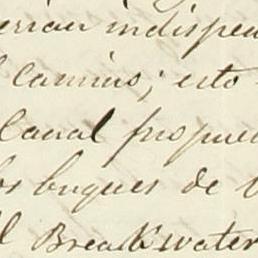 erian indispen
l camino; esto
Canal propue
os buques de v
l Breakwater